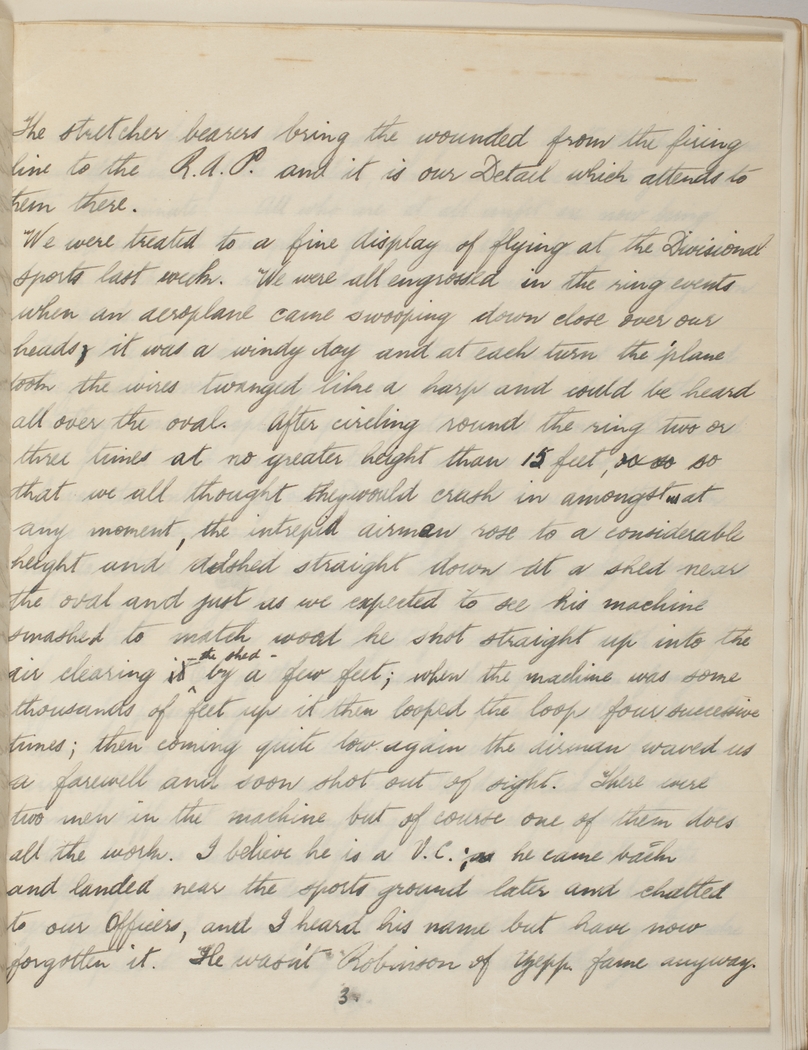 The stretcher bearers bring the wounded from the firing
line to the R.A.P. and it is our Detail which attends to
them there.
We were treated to a fine display of flying at the Divisional
sports last week. We were all engrossed in the ring events
when an aeroplane came swooping down close over our
heads, it was a windy day and at each turn the 'plane
took the wires twanged like a harp and could be heard
all over the oval. After circling round the ring two or
three times at no greater height than 15 feet, so
that we all thought they would crash in amongst us at
any moment, the intrepid airman rose to a considerable
height and dashed straight down at a shed near
the oval and just as we expected to see his machine
smashed to match wood he shot straight up into the
air clearing it - the shed - by a few feet; when the machine was some
thousands of feet up it then looped the loop four successive
times; then coming quite low again the airman waved us
a farewell and soon shot out of sight. There were
two men in the machine but of course one of them does
all the work. I believe he is a V.C.; he came back
and landed near the sports ground later and chatted
to our Officers, and I heard his name but have now
forgotten it. He wasn't Robinson of Zepp. fame anyway.
3.